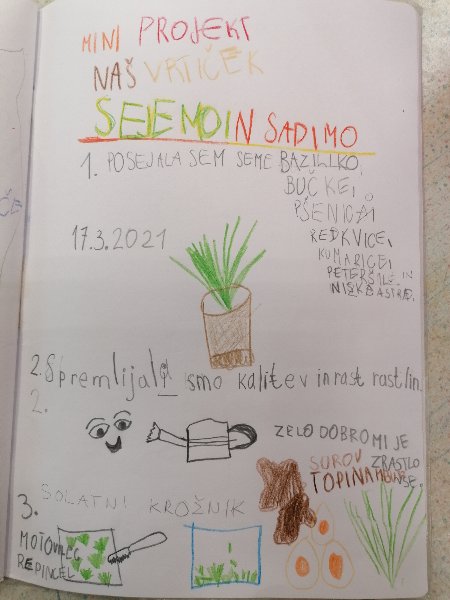 MINI PROJEKT
NAŠ VRTIČEK
SEJEMO IN SADIMO
1. POSEJALA SEM SEME BAZILIKO,
BUČKE,
PŠENICA,
REDKVICE,
KUMARICE,
PETERŠILJ, IN
NIZKE ASTRE.
17.3.2021
2. Spremljali smo kalitev in rast rastlin.
2.
ZELO DOBRO MI JE
ZRASTLO
VSE.
SUROV
TOPINAMBUR
3. SOLATNI KROŽNIK
MOTOVILEC
REPINCEL